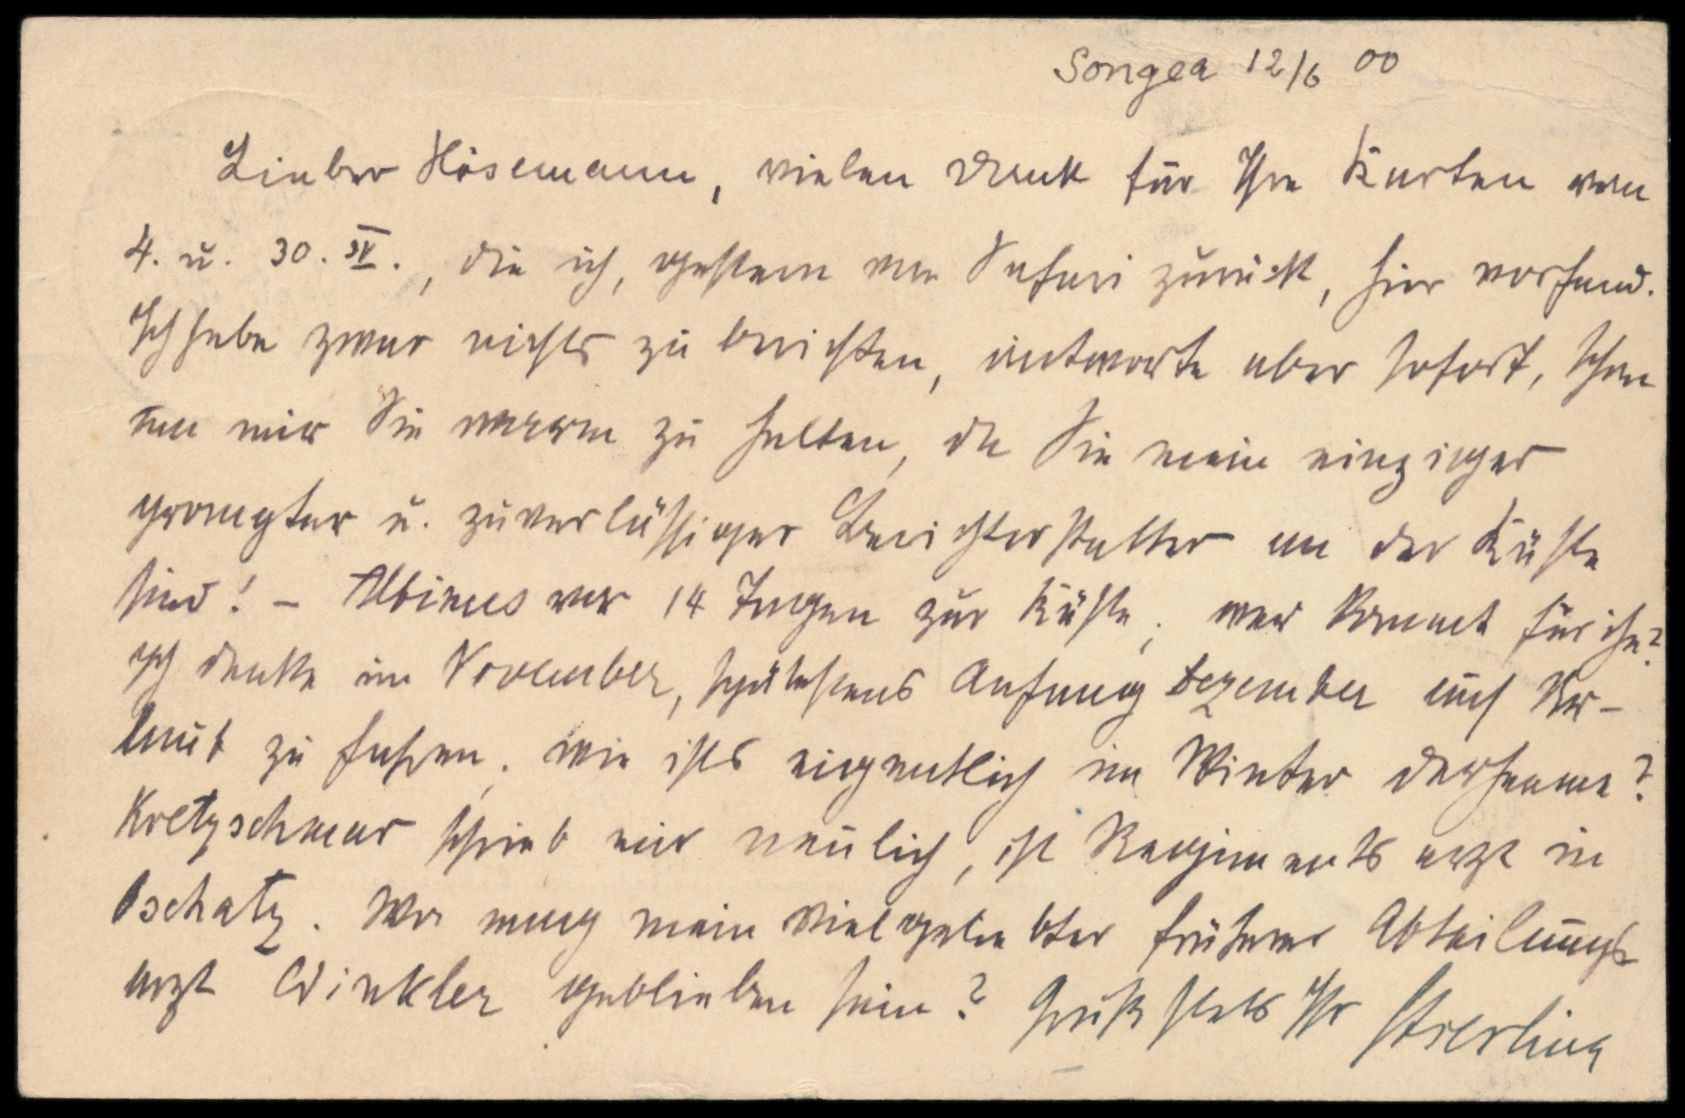 Songea 12/6 00
Lieber Hösemann, vielen Dank für Ihre Karten vom
4. u. 30. IV., die ich, gestern von Safari zurück, hier vorfand.
Ich habe zwar nichts zu berichten, antworte aber sofort, schon
um mir Sie warm zu halten, da Sie mein einziger
prompter u. zuverlässiger Berichterstatter an der Küste
sind! – Albinus vor 14 Tagen zur Küste; wer kommt für ihn?
Ich denke im November, spätestens Anfang Dezember auf Ur-
laub zu fahren. Wie ists eigentlich im Winter daheime?
Kretzschmar schrieb mir neulich, ist Regimentsarzt in
Oschatz. Wo mag mein vielgeliebter früherer Abteilungs
arzt Winkler geblieben sein? Gruß stets Ihr Stierling